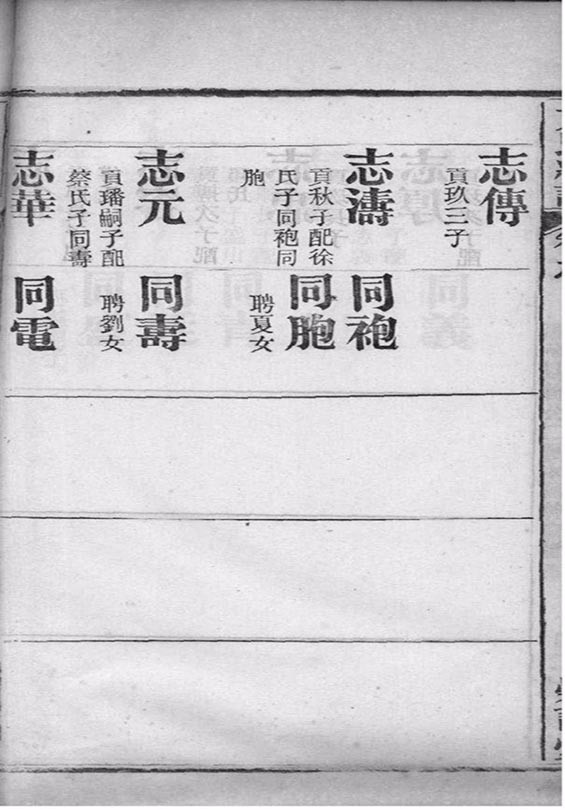 志傳
貢玖三子
志濤
貢秋子配徐
氏子同袍同
胞
志元
貢璠嗣子配
蔡氏子同壽
志華
同袍
同胞
聘夏女
同壽
聘劉女
同電